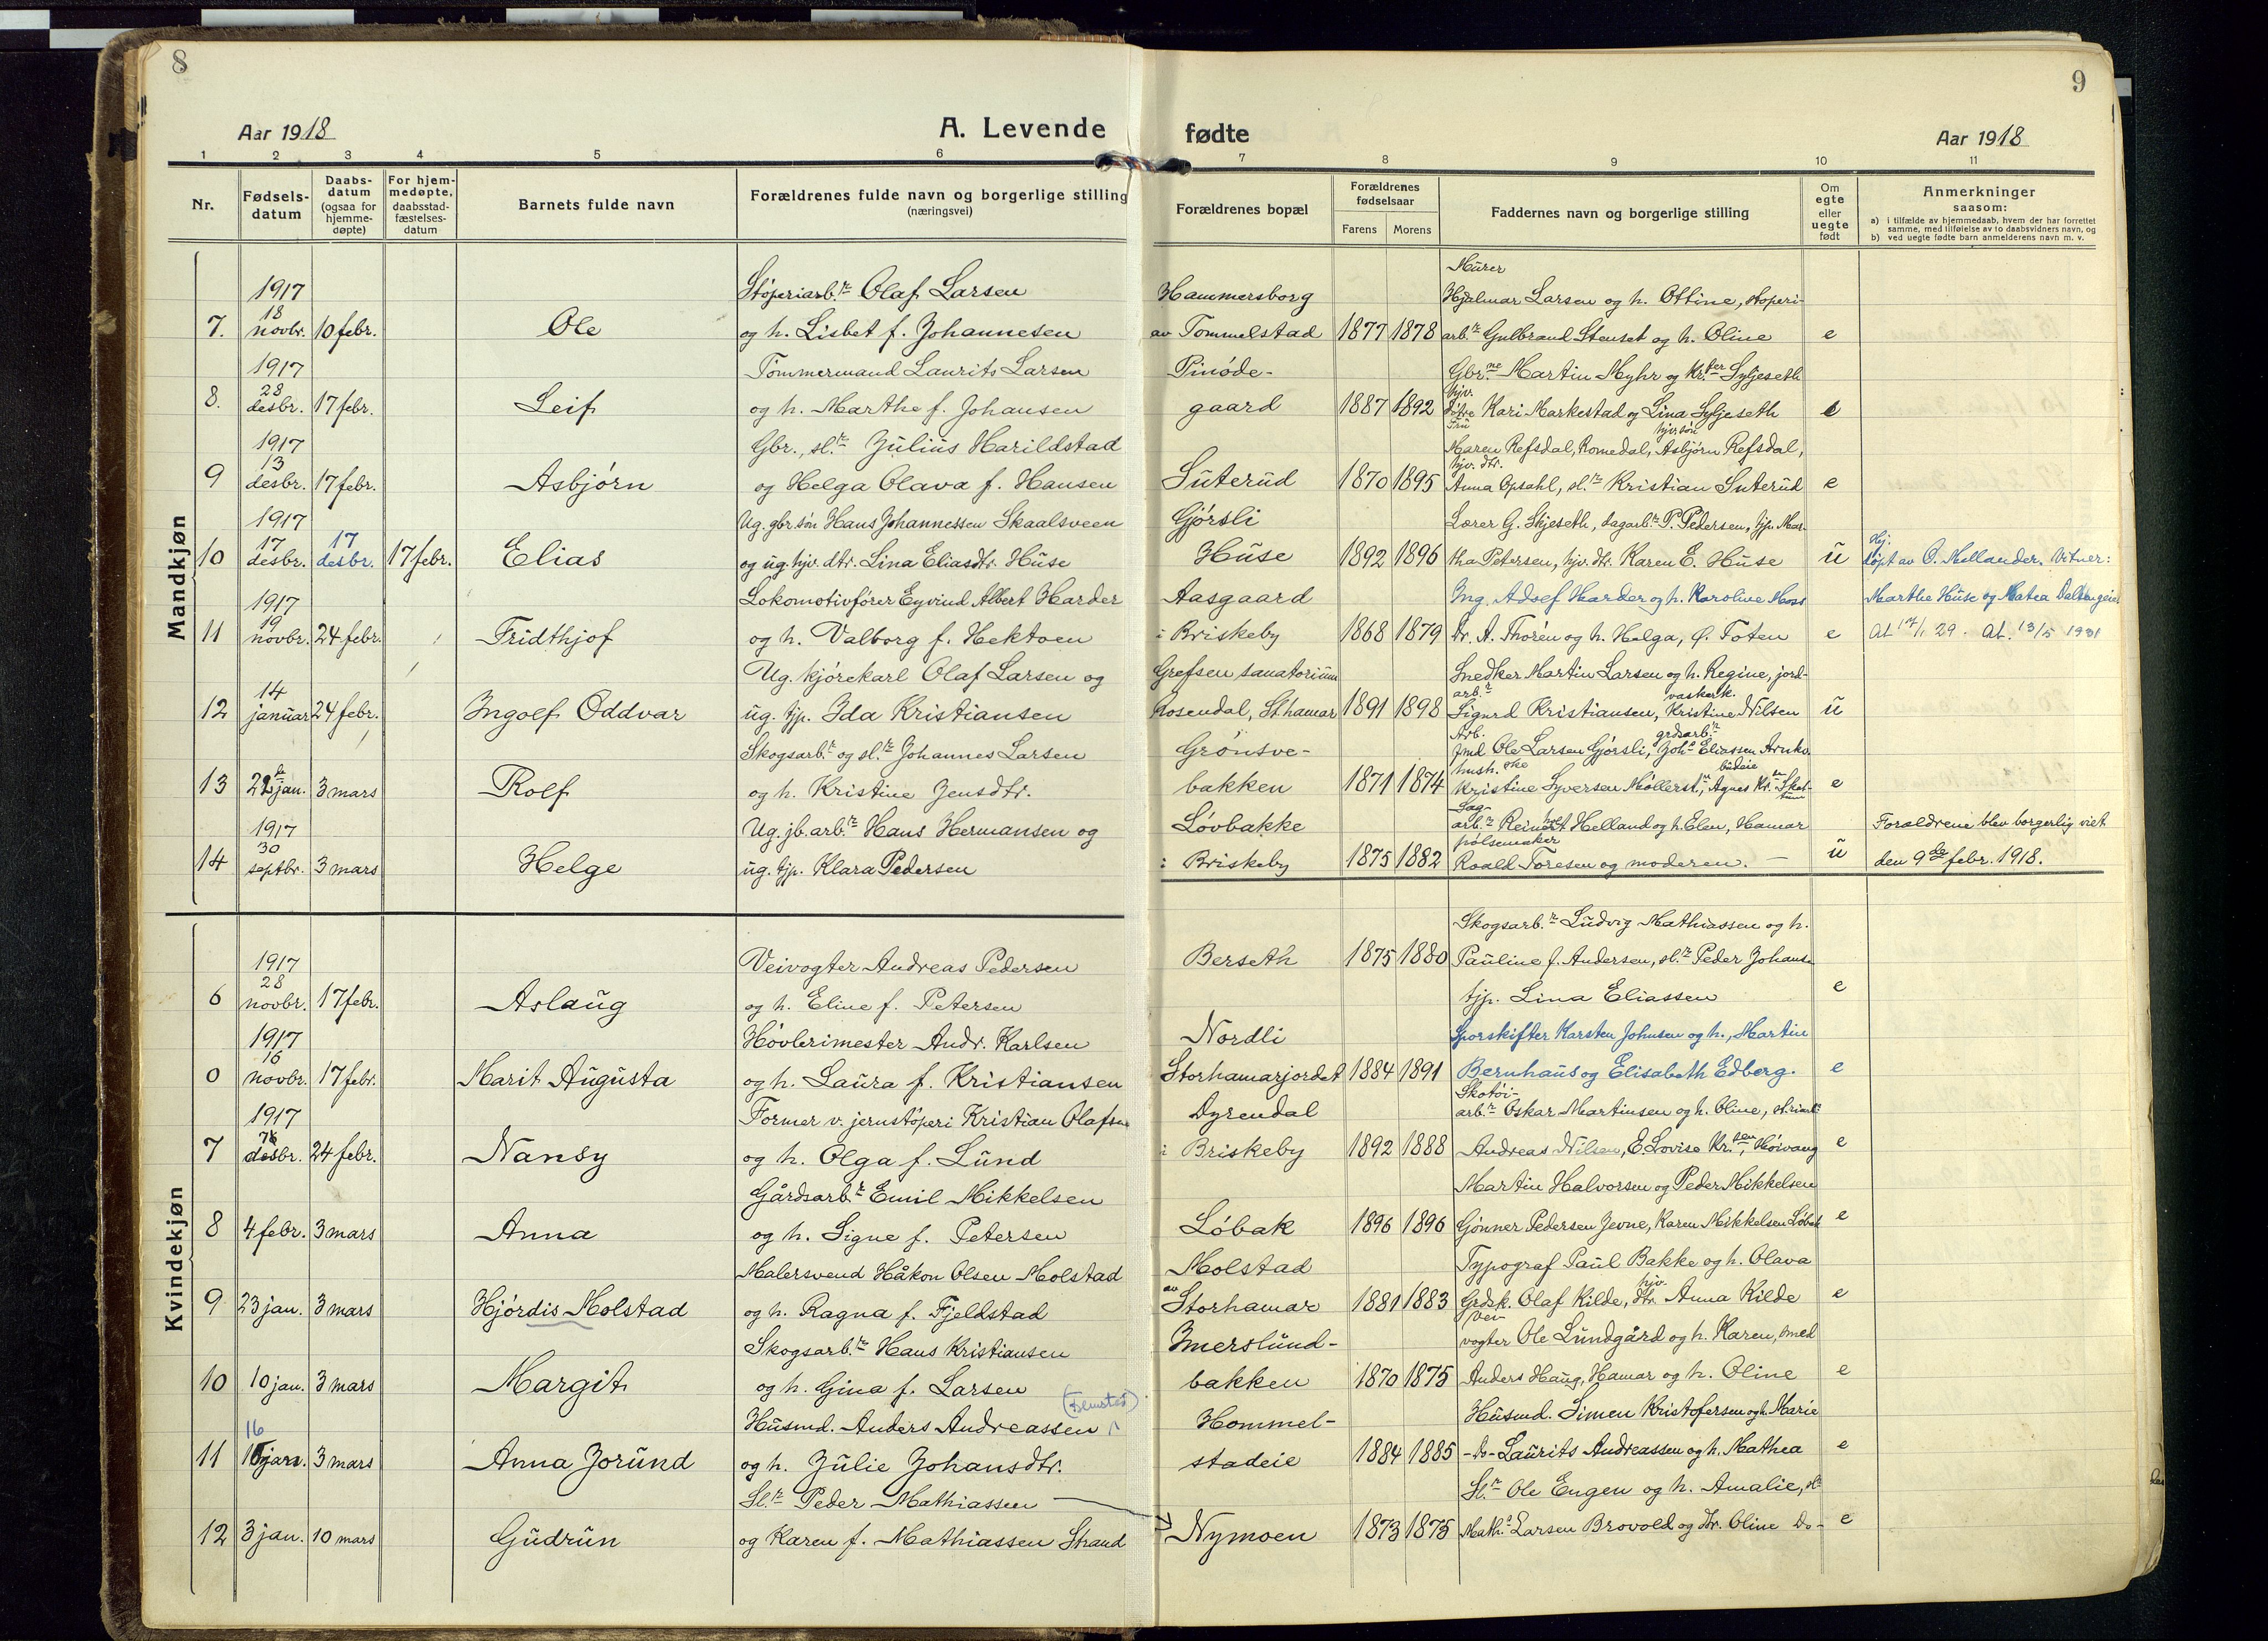 8
Aar 1918
A. Levende
1 2 3 4 5 6
Nr.
Fødsels-
datum
Daabs-
datum
(ogsaa for
hjemme-
døpte)
For hjem-
medøpte,
daabsstad-
fæstelses-
datum
Barnets fulde navn
Forældrenes fulde navn og borgerlige stilling
(næringsvei)
Mandkjøn
1917 Støperiarb.r Olaf Larsen
7. 18 novbr. 10 febr. Ole og h. Lisbet f. Johannesen
1917 Tømmermand Laurits Larsen
8. 28 desbr. 17 febr. Leif og h. Marthe f. Johansen
1917 Gbr., sl.r Julius Harildstad
9 13 desbr. 17 febr. Asbjørn og Helga Olava f. Hansen
1917 Ug. gbr. søn Hans Johannessen Skaalsveen
10 17 desbr. 17 desbr. 17 febr. Elias og ug. hjv. dtr. Lina Eliasdtr. Huse
1917 Lokomotivfører Eyvind Albert Harder
11 19 novbr. 24 febr. Fridthjof og h. Valborg f. Hektoen
Ug. kjørekarl Olaf Larsen og
12 14 januar 24 febr. Ingolf Oddvar ug. tjp. Ida Kristiansen
Skogsarb.r og sl.r Johannes Larsen
13 jan. 3 mars Rolf og h. Kristine Jensdtr.
1917 Ug. jb. arb.r Hans Hermansen og
14 30 septbr. 3 mars Helge ug. tjp. Klara Pedersen
Kvindekjøn
1917 Veivogter Andreas Pedersen
6 28 novbr. 17 febr. Aslaug og h. Eline f. Petersen
1917 Høvlerimester Andr. Karlsen
0 16 novbr. 17 febr. Marit Augusta og h. Laura f. Kristiansen
1917 Former v. jernstøperi Kristian Olafsen
7 desbr. 24 febr. Nansy og h. Olga f. Lund
Gårdsarb.r Emil Mikkelsen
8 4 febr. 3 mars Anna og h. Signe f. Petersen
Malersvend Håkon Olsen Molstad
9 23 jan. 3 mars Hjørdis Molstad og h. Ragna f. Fjeldstad
Skogsarb.r Hans Kristiansen
10 10 jan. 3 mars Margit og h. Gina f. Larsen
Husmd. Anders Andreassen
11 16 jan. 3 mars Anna Jorund og h. Julie Johansdtr.
Sl.r Peder Mathiassen
12 3 jan. 10 mars Gudrun og Karen f. Mathiassen Strand
9
fødte
Aar 1918
7 8 9 10 11
Forældrenes bopæl
Forældrenes
fødselsaar
Farens Morens
Faddernes navn og borgerlige stilling
Om
egte
eller
uegte
født
Anmerkninger
saasom:
a) i tilfælde av hjemmedaab, hvem der har forrettet
samme, med tilføielse av to daabsvidners navn, og
b) ved uegte fødte barn anmelderens navn m. v.
Murer
Hammersborg Hjalmar Larsen og h. Ottine, støperi-
av Tommelstad 1877 1878 arb.r Gulbrand Stenset og h. Oline e
Pinøde- Gbr.ne Martin Myhr og Kr.fer Syljeseth
gaard 1887 1892 hjv. døtre Kari Markestad og Lina Syljeseth e
Fru hjv. søn
Maren Refsdal, Romedal, Asbjørn Refsdal,
hjv. dtr.
Suterud 1870 1895 Anna Opsahl, sl.r Kristian Suterud e
Gjørsli Lærer G. Skjeseth, dagarb.r P. Pedersen, tjp. Mar-
Huse 1892 1896 tha Petersen, hjv. dtr. Karen E. Huse u Hj. døpt av O. Mellander. Vitner:
Aasgaard Ing. Adolf Harder og h. Karoline Moss Marthe Huse og Matea
i Briskeby 1868 1879 Dr. A. Thorén og h. Helga, Ø. Toten e At 29. At. 13/5 1931
Grefsen sanatorium Snedker Martin Larsen og h. Regine, jord-
arb.r vaskerk.
Rosendal, St.hamar 1891 1898 Sigurd Kristiansen, Kristine Nilsen u
Arb. grdsarb.r
Grønsve- Jml Ole Larsen Gjørsli, Joh.s Eliassen
hush.ske budeie
bakken 1871 1874 Kristine Syversen Møllerst., Agnes Kr.sen e
Sag-
Løvbakke arb.r Reinholt Helland og h. Elen, Hamar Forældrene blev borgerlig viet
pølsemaker
i Briskeby 1875 1882 Roald Toresen og moderen. u den 9de febr. 1918.
Skogsarb.r Ludvig Mathiassen og h.
Berseth 1875 1880 Pauline f. Andersen, sl.r Peder Johansen
tjp. Lina Eliassen e
Nordli Sporskifter Karsten Johnsen og h., Martin
Storhamarjordet 1884 1891 Bernhaus og Elisabeth Edberg. e
Skotøi-
Dyrendal arb.r Oskar Martinsen og h. Oline,
i Briskeby 1892 1888 Andreas Nilsen, E. Lovise Kr.sen, Høivang e
Martin Halvorsen og Peder Mikkelsen
Løbak 1896 1896 Gønner Pedersen Jevne, Karen Mikkelsen Løbak e
Molstad Typograf Paul Bakke og h. Olava
av Storhamar 1881 1883 Grdsk. Olaf Kilde, hjv. dtr. Anna Kilde e
Vei-
Imerslund- vogter Ole Lundgård og h. Karen, smed
bakken 1870 1875 Anders Haug, Hamar og h. Oline e
Hommel- Husmd. Simen Kristofersen og h. Marie
stadeie 1884 1885 -Do- Laurits Andreassen og h. Mathea e
Sl.r Ole Engen og h. Amalie, sl.r
Nymoen 1873 1875 Math.s Larsen Brovold og dtr. Oline Do- e